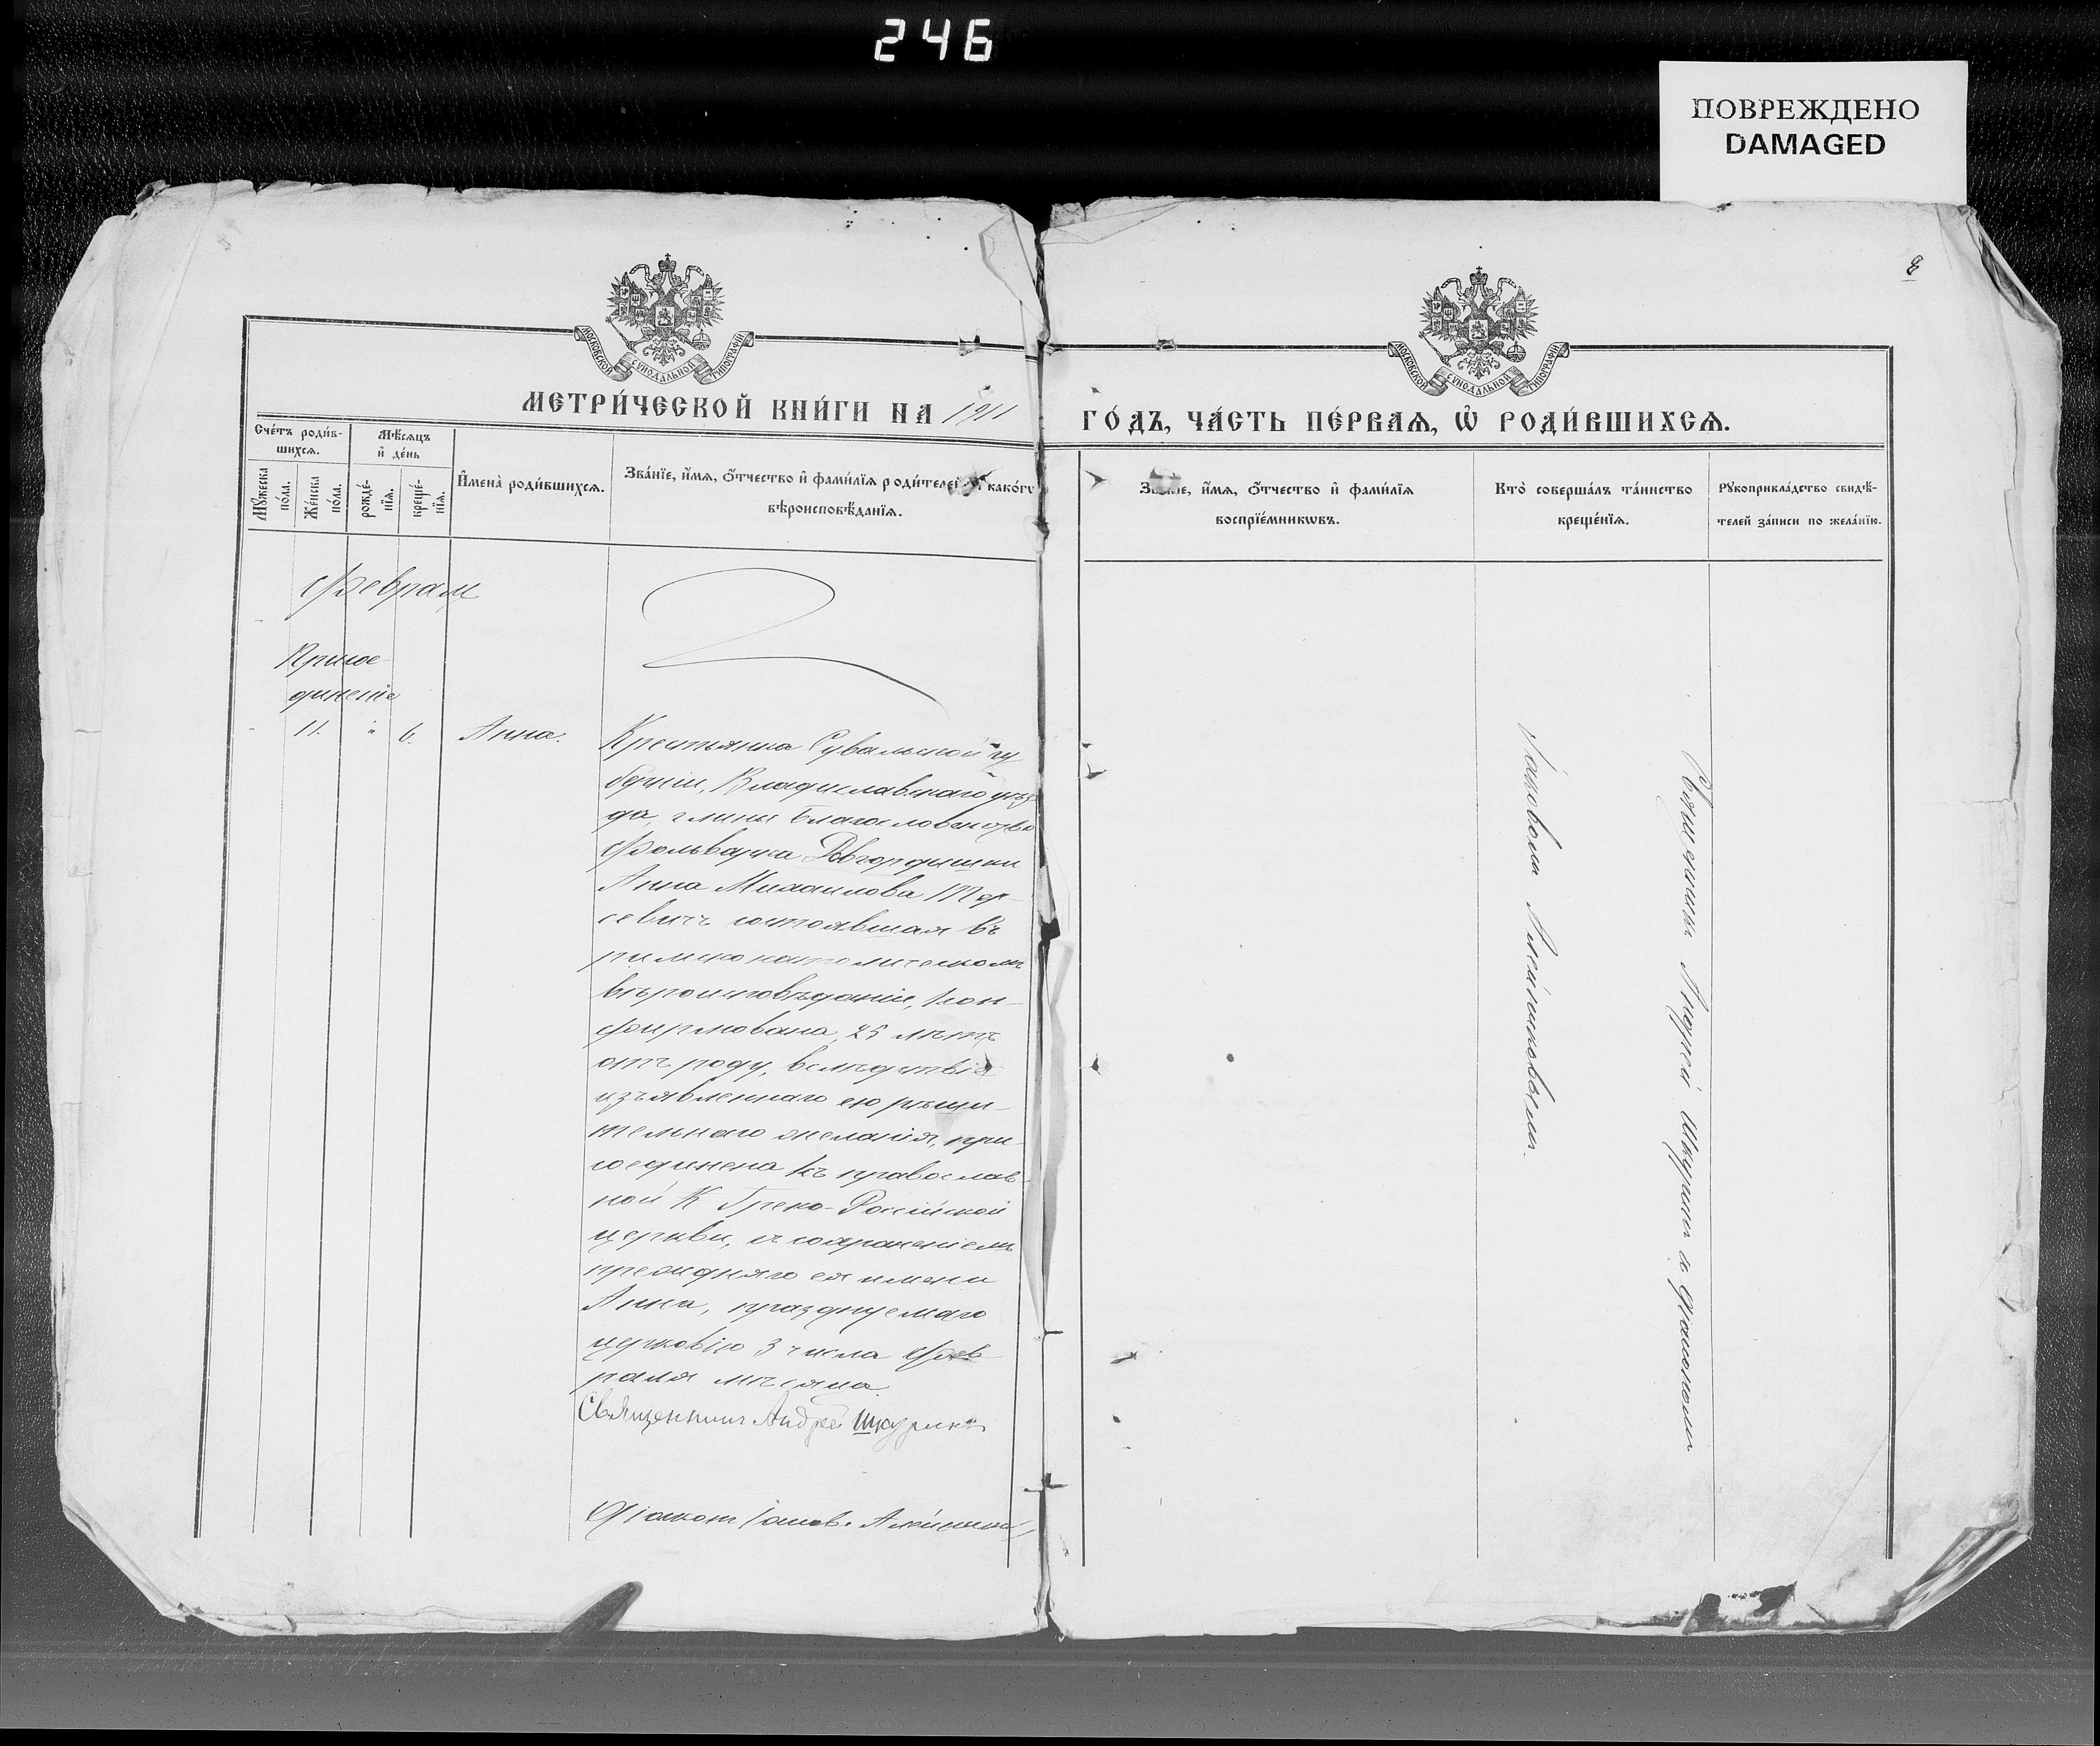 246
ПОВРЕЖДЕНО
DAMAGED
8
МОСКОВСКОЙ СѴНОДАЛЬНОЙ ТИПОГРАФІИ
МОСКОВСКОЙ СѴНОДАЛЬНОЙ ТИПОГРАФІИ
МЕТРИ́ЧЕСКОЙ КНИ́ГИ НА 1911
ГО́ДЪ, ЧА́СТЬ ПЕ́РВАѦ, Ѡ҆ РОДИ́ВШИХСѦ.
Сче́тъ роди́в-
шихсѧ.
Мѣ́сѧцъ
и҆ де́нь
Мꙋ́жеска
по́ла.
Же́нска
по́ла.
рожде́-
нїѧ.
креще́-
нїѧ.
И҆мена̀ роди́вшихсѧ.
Зва́нїе, и҆́мѧ, ѻ҆́тчество и҆ фами́лїѧ роди́телей како́гѡ
вѣроисповѣ́данїѧ.
Зва́нїе, и҆́мѧ, ѻ҆́тчество и҆ фами́лїѧ
воспрїе́мникѡвъ.
Кто̀ соверша́лъ та́инство
креще́нїѧ.
Рꙋкоприкла́дство свидѣ́-
телей за́писи по жела́нїю.
Февраль
Присое-
диненіе
11. " 6. Анна.
Крестьянка Сувалкской гу
берніи, Владиславскаго уѣз
да, гмины Благословенство
фольварка Довгордишки
Анна Михаилова
севичъ состоявшая въ
римско католическомъ
вѣроисповѣданіи, кон-
фирмована, 25 лѣтъ
отъ роду, вслѣдствіе
изъявленнаго ею рѣши-
тельнаго желанія, при-
соединена къ православ-
ной К Греко-Россійской
церкви, съ сохраненіемъ
прежняго ея имени
Анна, празднуемаго
церковію 3 числа Фев
раля мѣсяца.
Священникъ Андрей Шкуринъ
Діаконъ Іаков.
Священникъ Андрей Шкуринъ съ діакономъ
Іаковомъ